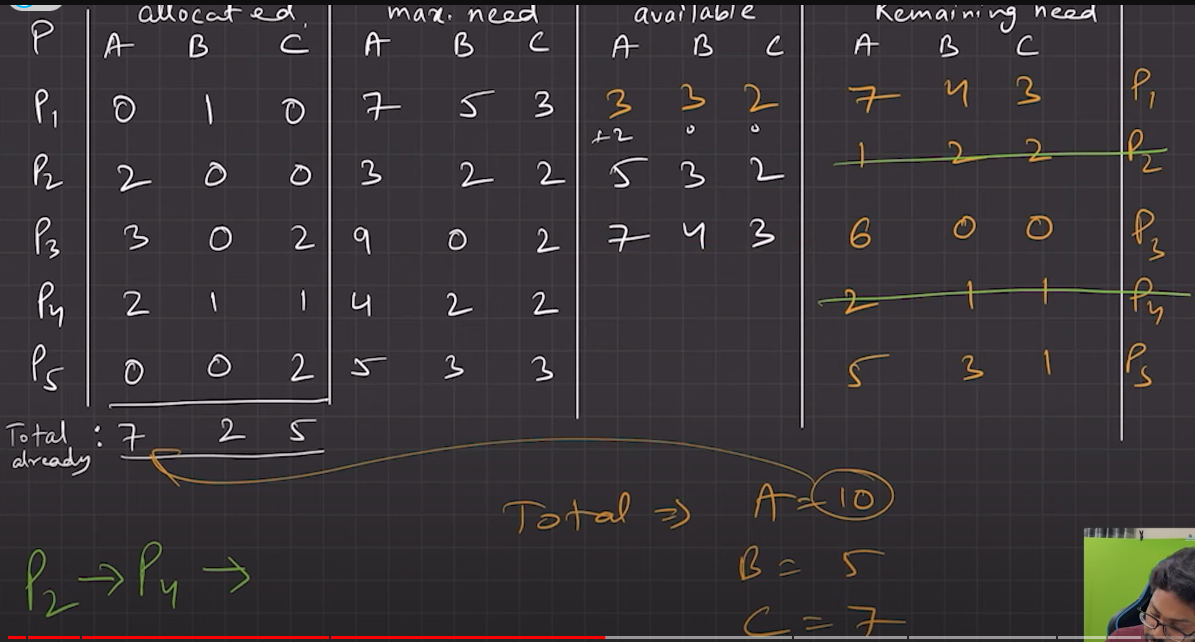 allocated. max. need available Remaining need
P A B C A B C A B C A B C
P1 0 1 0 7 5 3 3 3 2 7 4 3 P1
+2 0 0
1 2 2 P2
P2 2 0 0 3 2 2 5 3 2
P3 3 0 2 9 0 2 7 4 3 6 0 0 P3
P4 2 1 1 4 2 2 2 1 1 P4
P5 0 0 2 5 3 3 5 3 1 P5
Total already : 7 2 5
Total ⇒ A = 10
B = 5
C = 7
P2 → P4 →